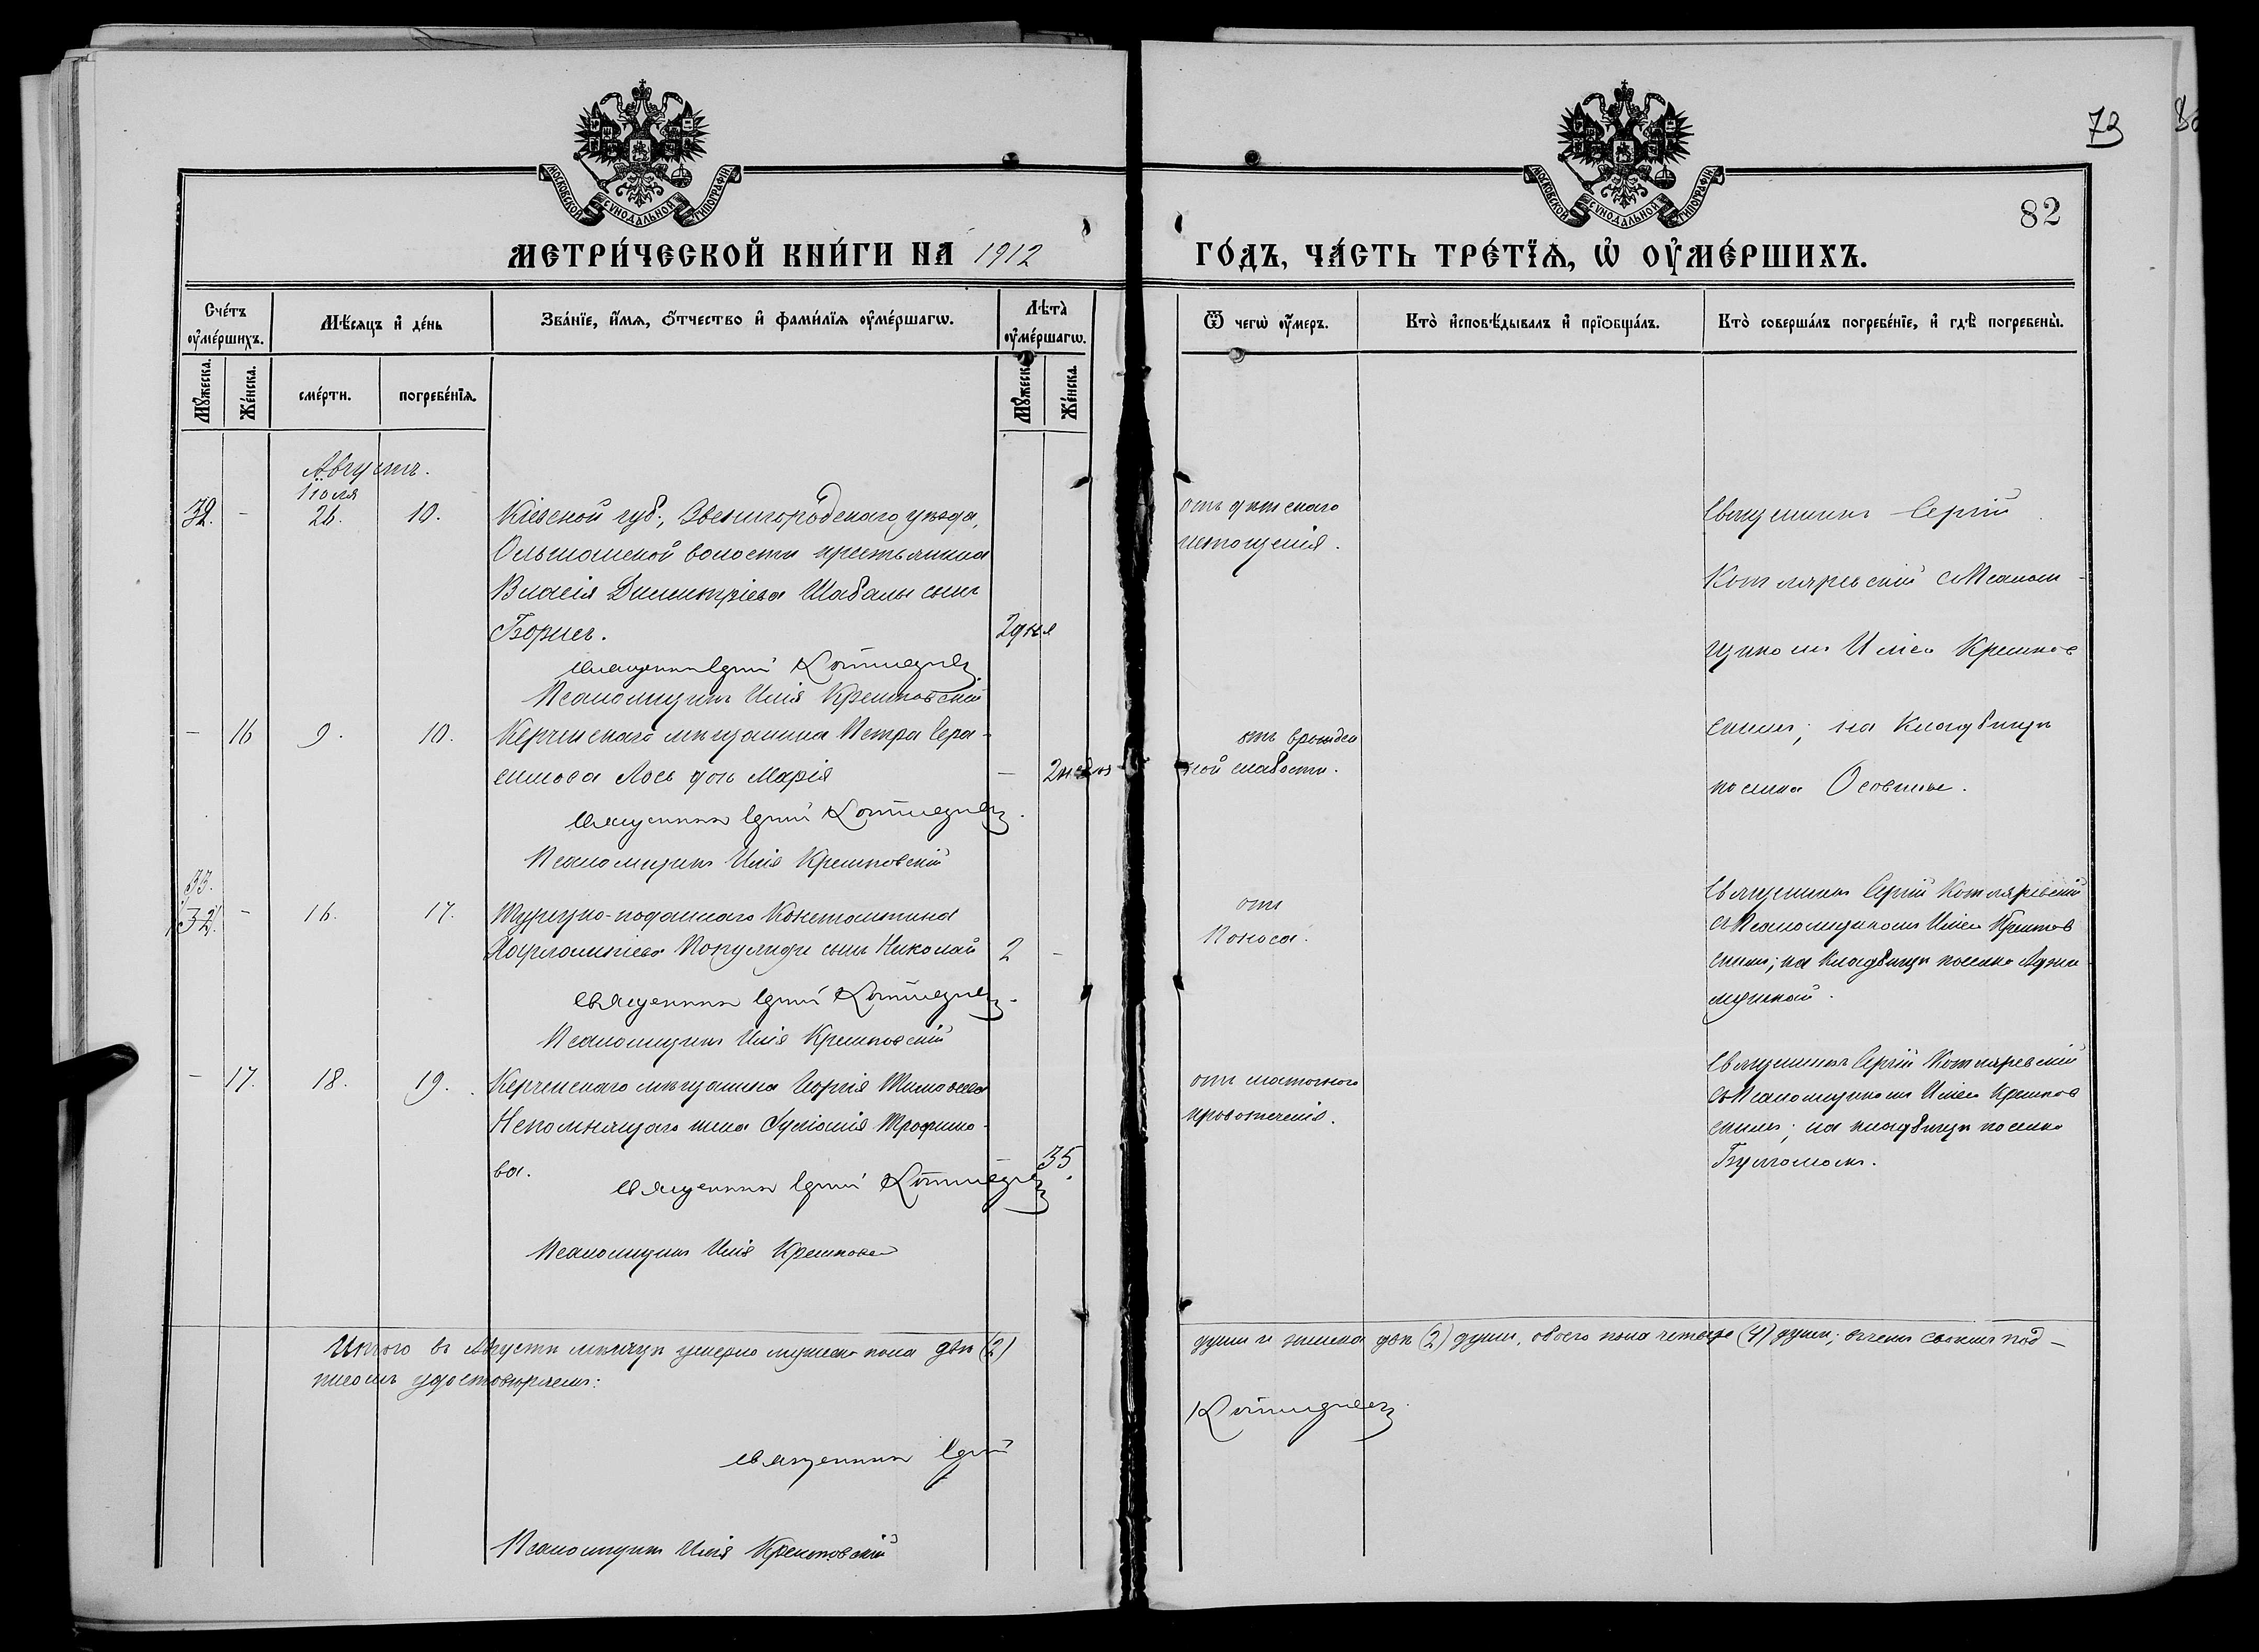 73
82
МОСКОВСКОЙ СѴНОДАЛЬНОЙ ТИПОГРАФІИ
МОСКОВСКОЙ СѴНОДАЛЬНОЙ ТИПОГРАФІИ
МЕТРИ́ЧЕСКОЙ КНИ́ГИ НА 1912
ГО́ДЪ, ЧА́СТЬ ТРЕ́ТЇѦ, Ѡ҆ ОУ҆МЕ́РШИХЪ.
Сче́тъ оу҆ме́ршихъ.
Мѣ́сяцъ и҆ де́нь
Зва́нїе, и҆́мѧ, ѻ҆́тчество и҆ фами́лїѧ оу҆ме́ршагѡ.
Лѣта̀ оу҆ме́ршагѡ.
Ѿ чегѡ̀ оу҆́меръ.
Кто̀ и҆сповѣ́дывалъ и҆ прїѻбща́лъ.
Кто̀ соверша́лъ погребе́нїе, и҆ гдѣ̀ погребены̀.
Мꙋ́жеска.
Же́нска.
сме́рти.
погребе́нїѧ.
Мꙋ́жеска.
Же́нска.
Августъ.
Іюля
32. - 26. 10. Кіевской губ., Звенигородскаго уѣзда,
Ольшанской волости крестьянина
Власія Димитріева Шабалы сынъ
Борисъ. 2 дня
Священникъ Сергій Котляревск
Псаломщикъ Илія Крешковскій
отъ дѣтскаго
истощенія.
Священникъ Сергій
Котляревскій съ Псалом-
щикомъ Иліею Крешков
скимъ; на кладбищѣ
поселка Осовины.
- 16 9. 10. Керченскаго мѣщанина Петра Гера-
симова Лось дочь Марія - 2 недѣли
Священникъ Сергій Котляревск
Псаломщикъ Илія Крешковскій
отъ врожден
ной слабости.
33.
32. - 16. 17. Турецко-подданнаго Константина
Популиди сынъ Николай 2 -
Священникъ Сергій Котляревск
Псаломщикъ Илія Крешковскій
отъ
Поноса.
Священникъ Сергій Котляревскій
съ Псаломщикомъ Иліею Крешков
скимъ; на кладбищѣ поселка Аджи
мушкай.
- 17. 18. 19. Керченскаго мѣщанина Георгія Тимофеева
Непомнящаго жена Трофимо-
ва. 35.
Священникъ Сергій Котляревск
Псаломщикъ Илія Крешковск
отъ маточнаго
кровотеченія.
Священникъ Сергій Котляревскій
съ Псаломщикомъ Иліею Крешков
скимъ; на кладбищѣ поселка
Булганакъ.
Итого въ Августѣ мѣсяцѣ умерло мужеска пола двѣ (2)
души и женска двѣ (2) души, обоего пола четыре (4) души; въ чемъ своимъ под-
писомъ удостовѣряемъ:
Священникъ Сергій Котляревск
Псаломщикъ Илія Крешковскій